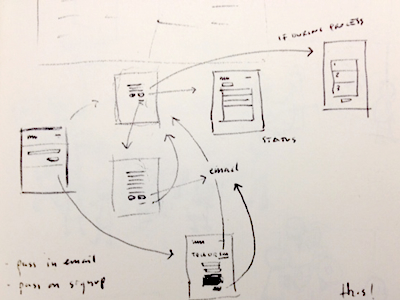 IF DURING PROCESS
STATUS
EMAIL
· pass in email
· pass on signup